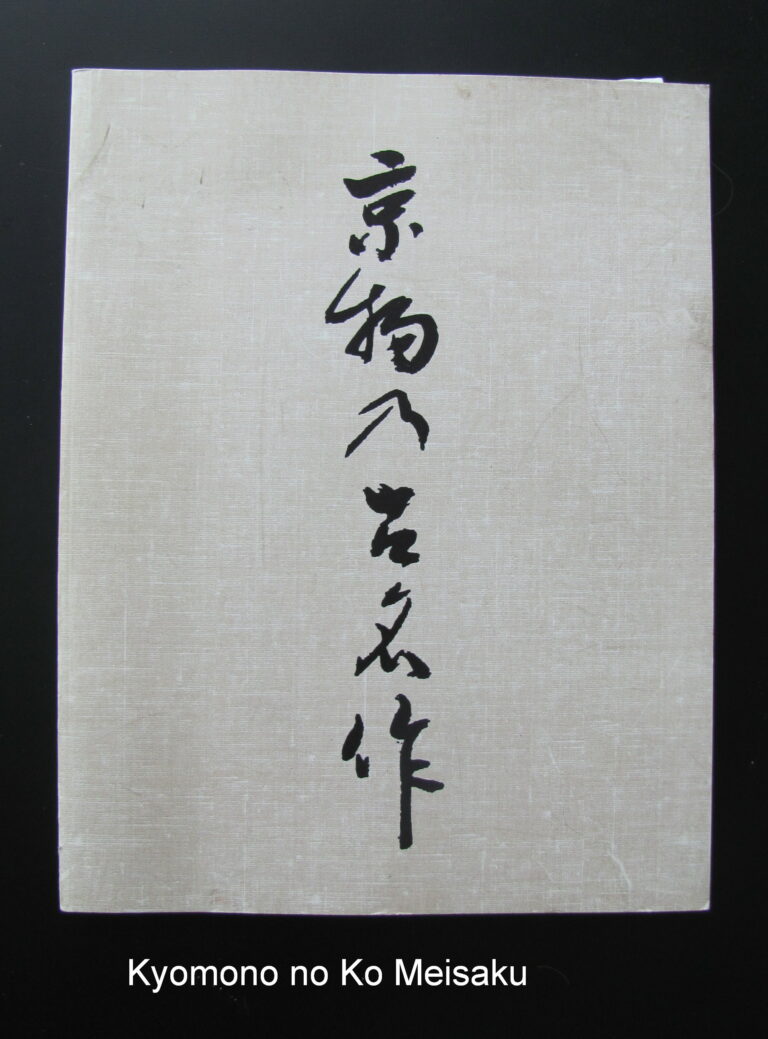 京物乃古名作
Kyomono no Ko Meisaku